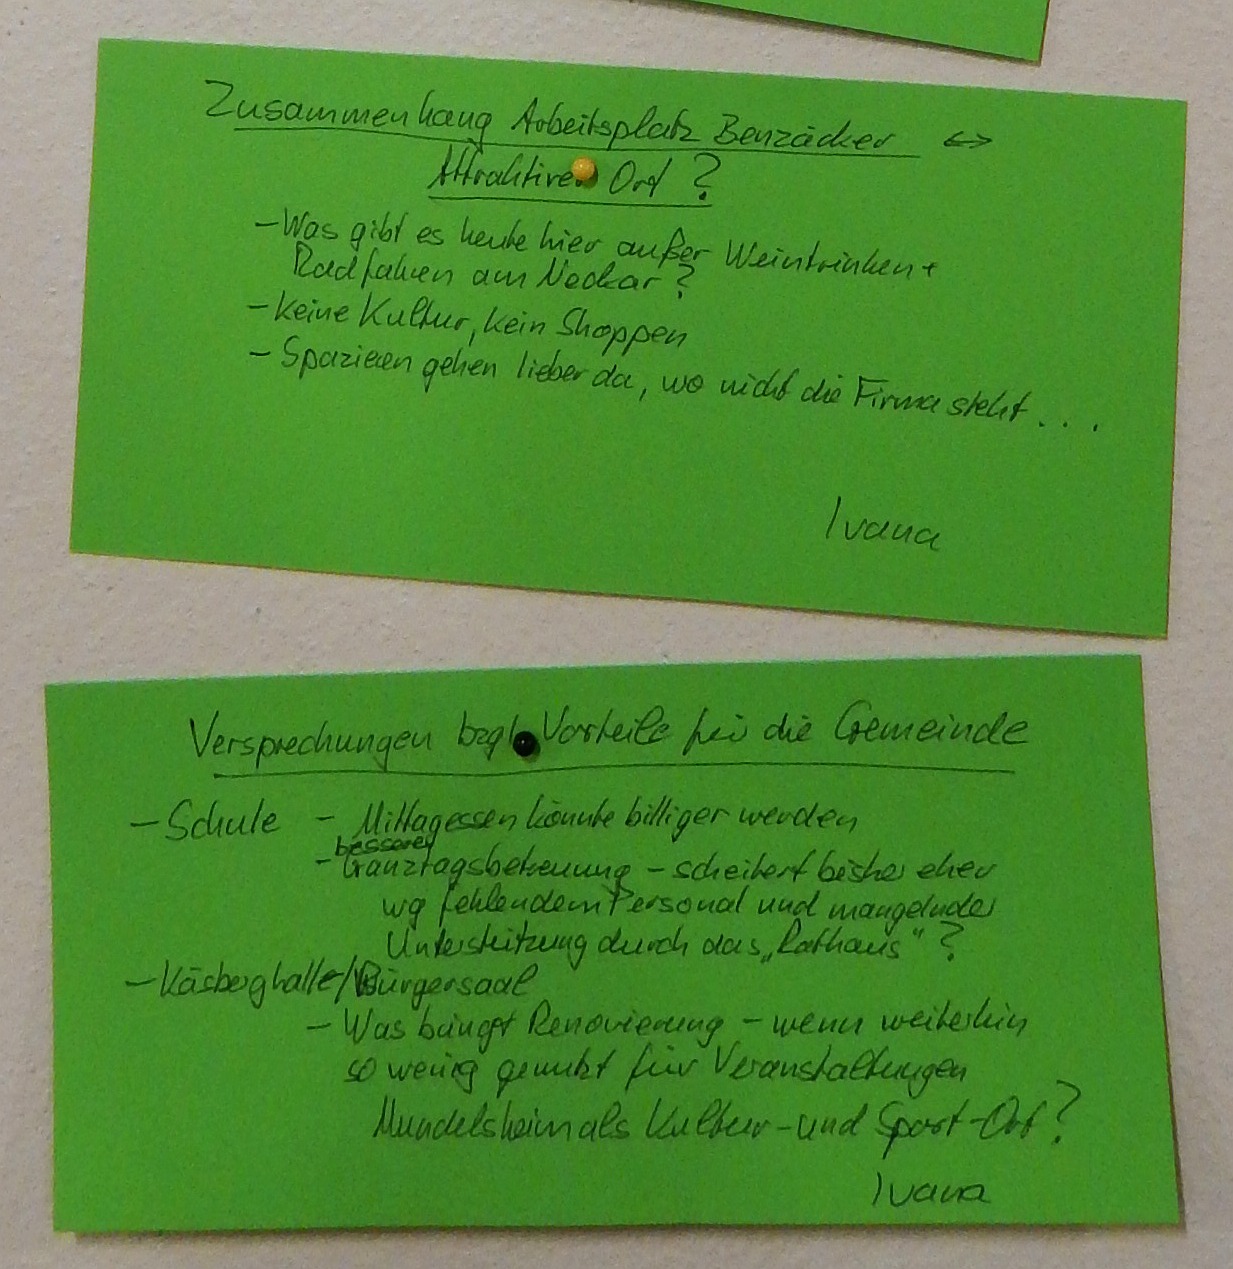 Zusammenhang Arbeitsplatz Benzäcker ↔
Attraktiver Ort ?
- Was gibt es heute hier außer Weintrinken +
Radfahren am Neckar ?
- keine Kultur, kein Shoppen
- Spazieren gehen lieber da, wo nicht die Firma steht . . .
Ivana
Versprechungen bzgl. Vorteile für die Gemeinde
- Schule - Mittagessen könnte billiger werden
bessere
- Ganztagsbetreuung - scheitert bisher eher
wg fehlendem Personal und mangelnder
Unterstützung durch das „Rathaus" ?
- Käsberghalle/Bürgersaal
- Was bringt Renovierung - wenn weiterhin
so wenig genutzt für Veranstaltungen
Mundelsheim als Kultur- und Sport-Ort ?
Ivana